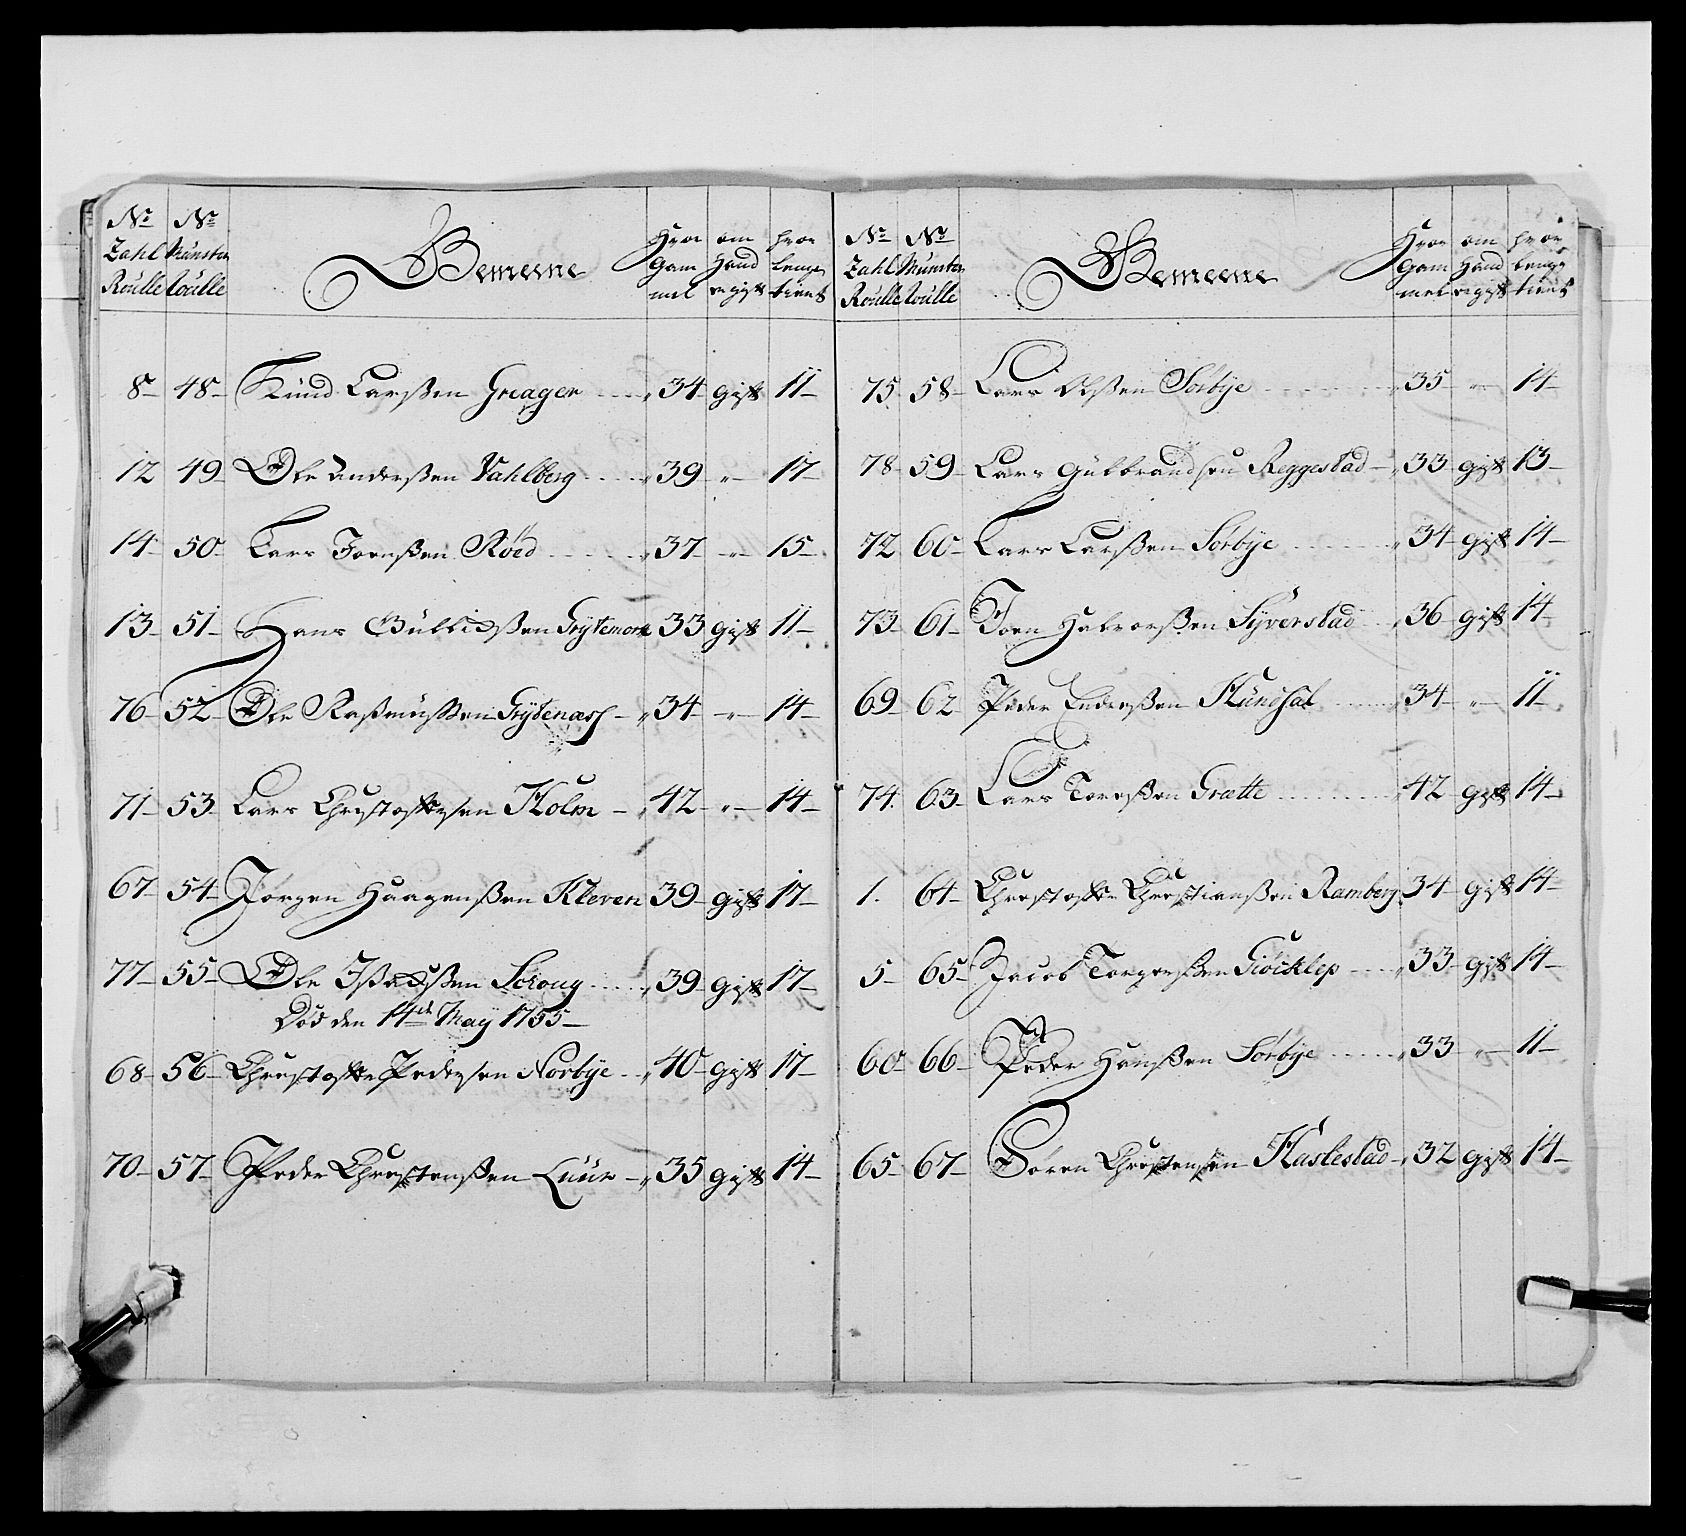 No Zahl Roulle No Münster Roulle Gemeene Hvor Gammel om Hand er gift hvor lenge tient
8 48 Knud Larssen Greager 34 gift 11
12 49 Ole Anderssen Vahlberg 39 " 17
14 50 Lars Joenssen Røed 37 " 15
13 51 Hans Gulbr:ssen Grytemork 33 gift 11
76 52 Ole Rassmussen Grytenæss 34 " 14
71 53 Lars Christoffersen Holm 42 " 14
67 54 Jørgen Haagenssen Kleven 39 gift 17
77 55 Ole Schoug 39 gift 17
Død den 14de May 1755
68 56 Christoffer Pedersen Norbye 40 gift 17
70 57 Peder Christenssen Luur 35 gift 14
No Zahl Roulle No Münster Roulle Gemeene Hvor Gammel om Hand er gift hvor lenge tient
75 58 Lars Olssen Sørbye 35 " 14
78 59 Lars Gulbrandsen Reggestad 33 gift 13
72 60 Lars Larssen Sørbye 34 gift 14
73 61 Joen Halvorssen Syverstad 36 gift 14
69 62 Peder Enderssen Hundsal 34 " 11
74 63 Lars Toressen Grætte 42 gift 14
1 64 Christoffer Christianssen Ramberg 34 gift 14
5 65 Jacob Torgerssen Giöcklep 33 gift 14
60 66 Peder Hanssen Sørbye 33 " 11
65 67 Søren Christenssen Haslestad 32 gift 14